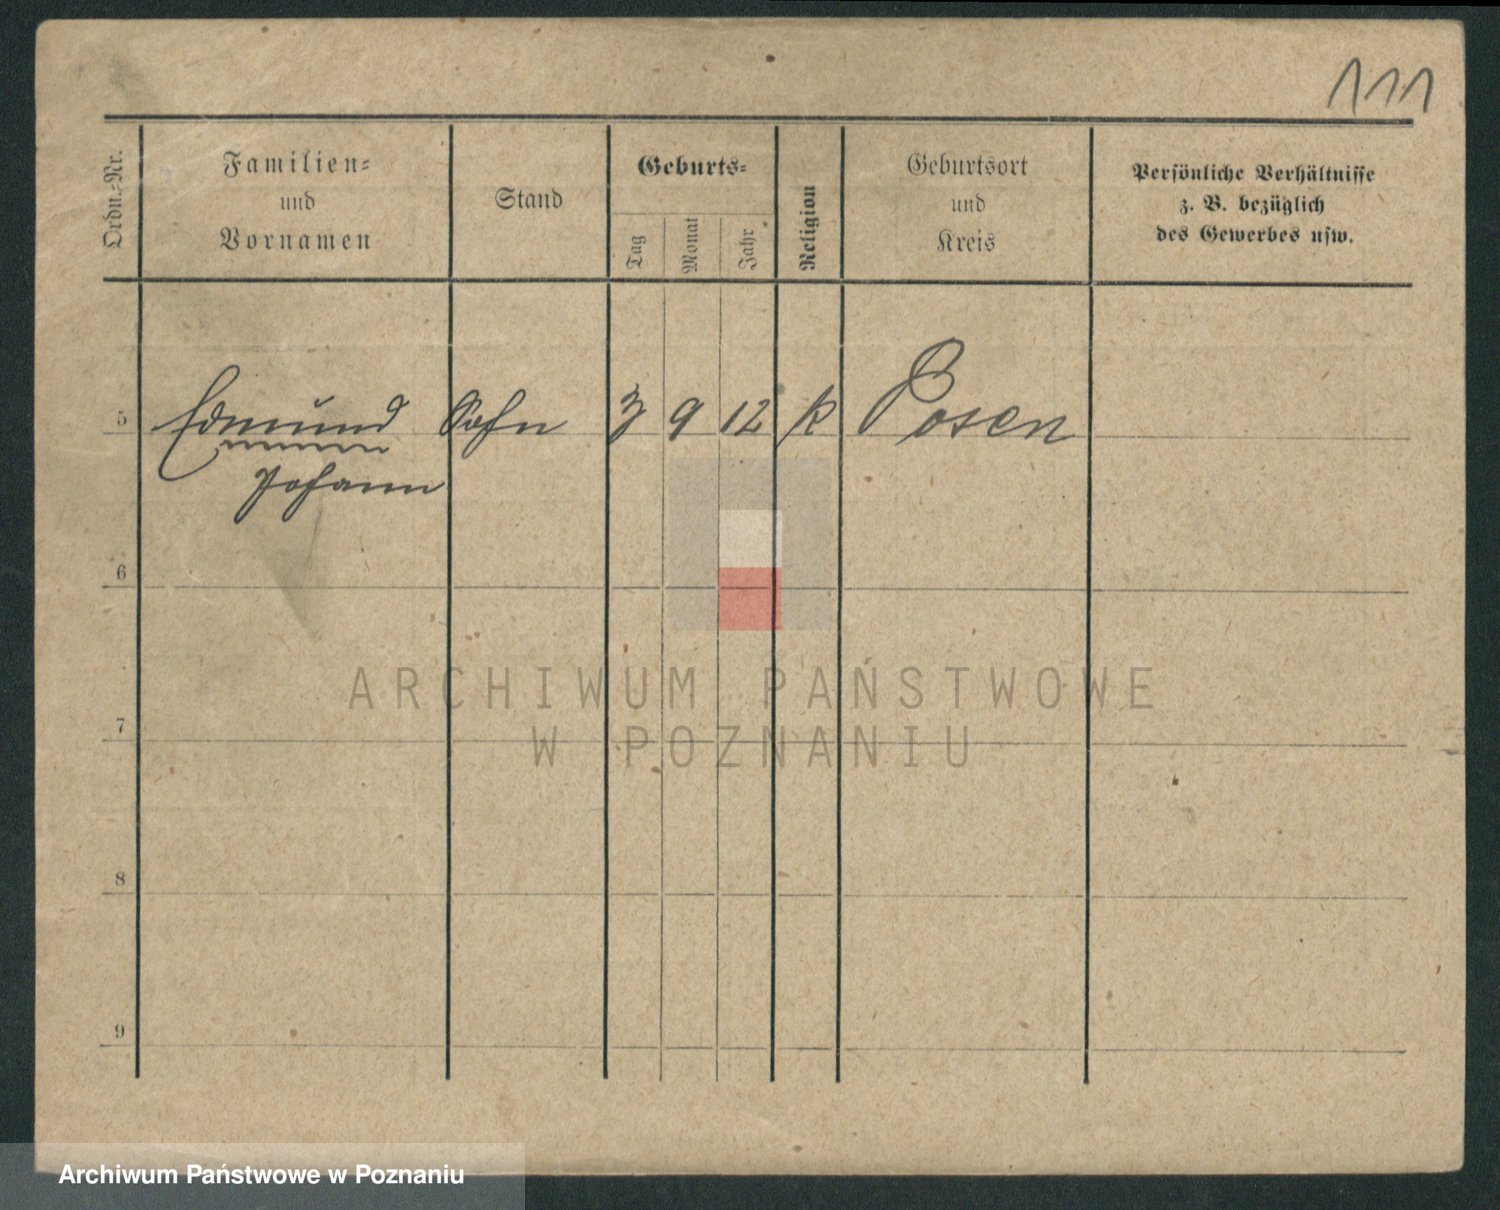 111
Ordn.-Nr.
Familien-
und
Vornamen
Stand
Geburts-
Tag
Monat
Jahr
Religion
Geburtsort
und
Kreis
Persönliche Verhältnisse
z. B. bezüglich
des Gewerbes usw.
5 Edmund Sohn 3 9 12 k Posen
Johann
6
7
8
9
ARCHIWUM PAŃSTWOWE
W POZNANIU
Archiwum Państwowe w Poznaniu